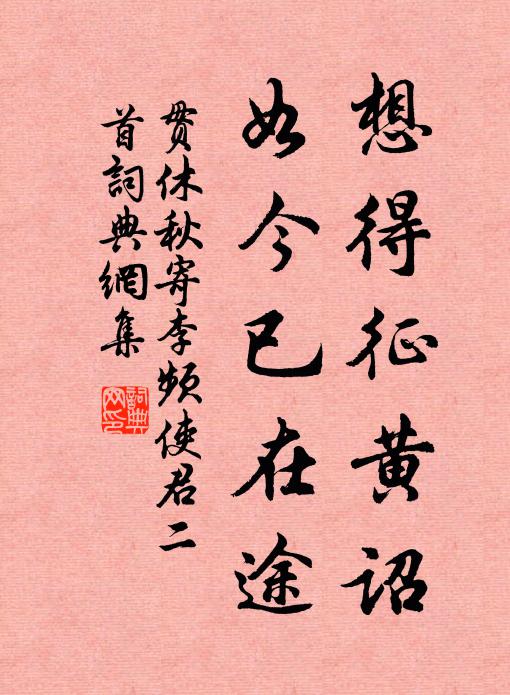 想得征黄詔
如今已在途
贯休秋寄李頻使君二
首詞典網集
詞典
网印